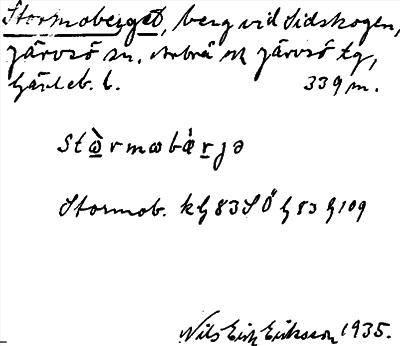 Stormoberget, berg vid Sidskogen,
Järvsö sn. Arbrå ok Järvsö tg,
Gävleb. l. 339 m.
Stὼrmωbä́rjə
Stormob. kG 83 SÖ G 83 G 109
Nils Erik Eriksson 1935.